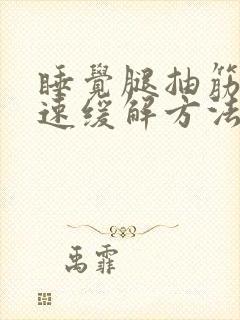 睡覺腿抽筋
速缓解方法
禹霏